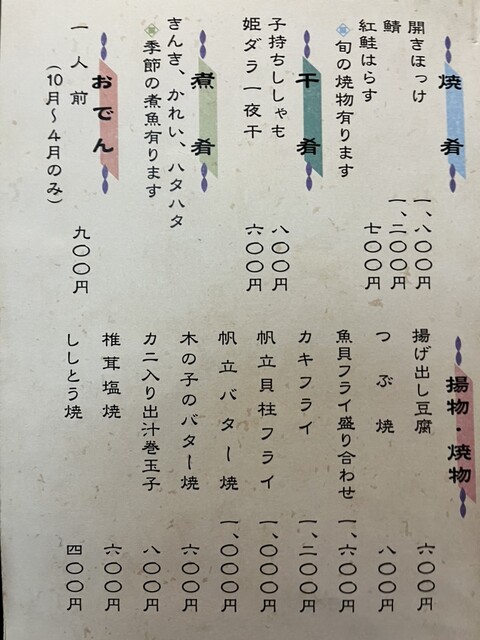 焼肴
開きほっけ 一、八〇〇円
鯖 一、二〇〇円
紅鮭はらす 七〇〇円
旬の焼物有ります
干肴
子持ちししゃも 八〇〇円
姫ダラ一夜干 六〇〇円
煮肴
きんき、かれい、ハタハタ
季節の煮魚有ります
おでん
一人前 九〇〇円
(10月〜4月のみ)
揚物・焼物
揚げ出し豆腐 六〇〇円
つぶ焼 八〇〇円
魚貝フライ盛り合わせ 一、六〇〇円
カキフライ 一、二〇〇円
帆立貝柱フライ 一、〇〇〇円
帆立バター焼 一、〇〇〇円
木の子のバター焼 六〇〇円
カニ入り出汁巻玉子 八〇〇円
椎茸塩焼 六〇〇円
ししとう焼 四〇〇円